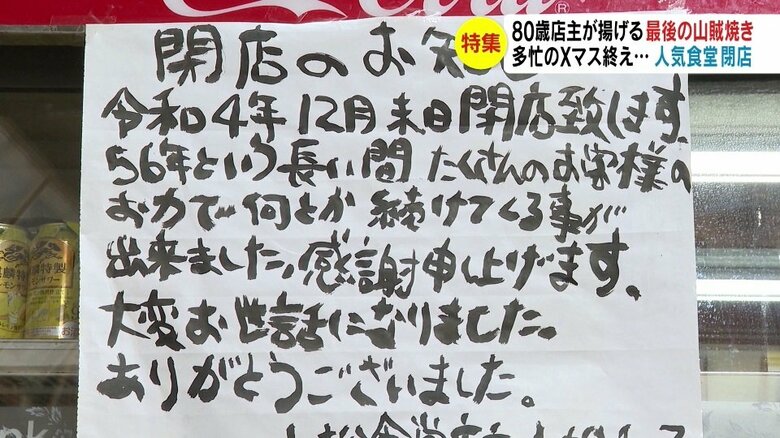 特集
80歳店主が揚げる 最後の山賊焼き
多忙のXマス終え… 人気食堂 閉店
閉店のお知
令和4年12月末日閉店致します。
56年という長い間 たくさんのお客様の
お力で何とか続けてくる事が
出来ました、感謝申上げます。
大変お世話になりました。
ありがとうございました。